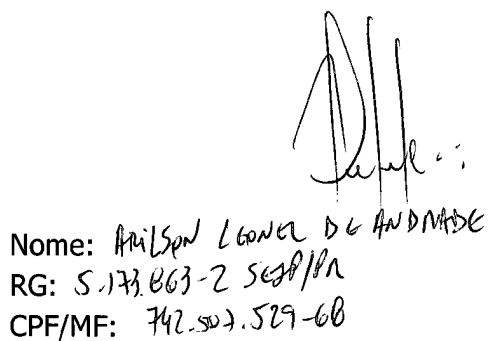 Nome: ARILSON LEONEL DE ANDRADE
RG: 5.173.863-2 SESP/PR
CPF/MF: 742.507.529-68